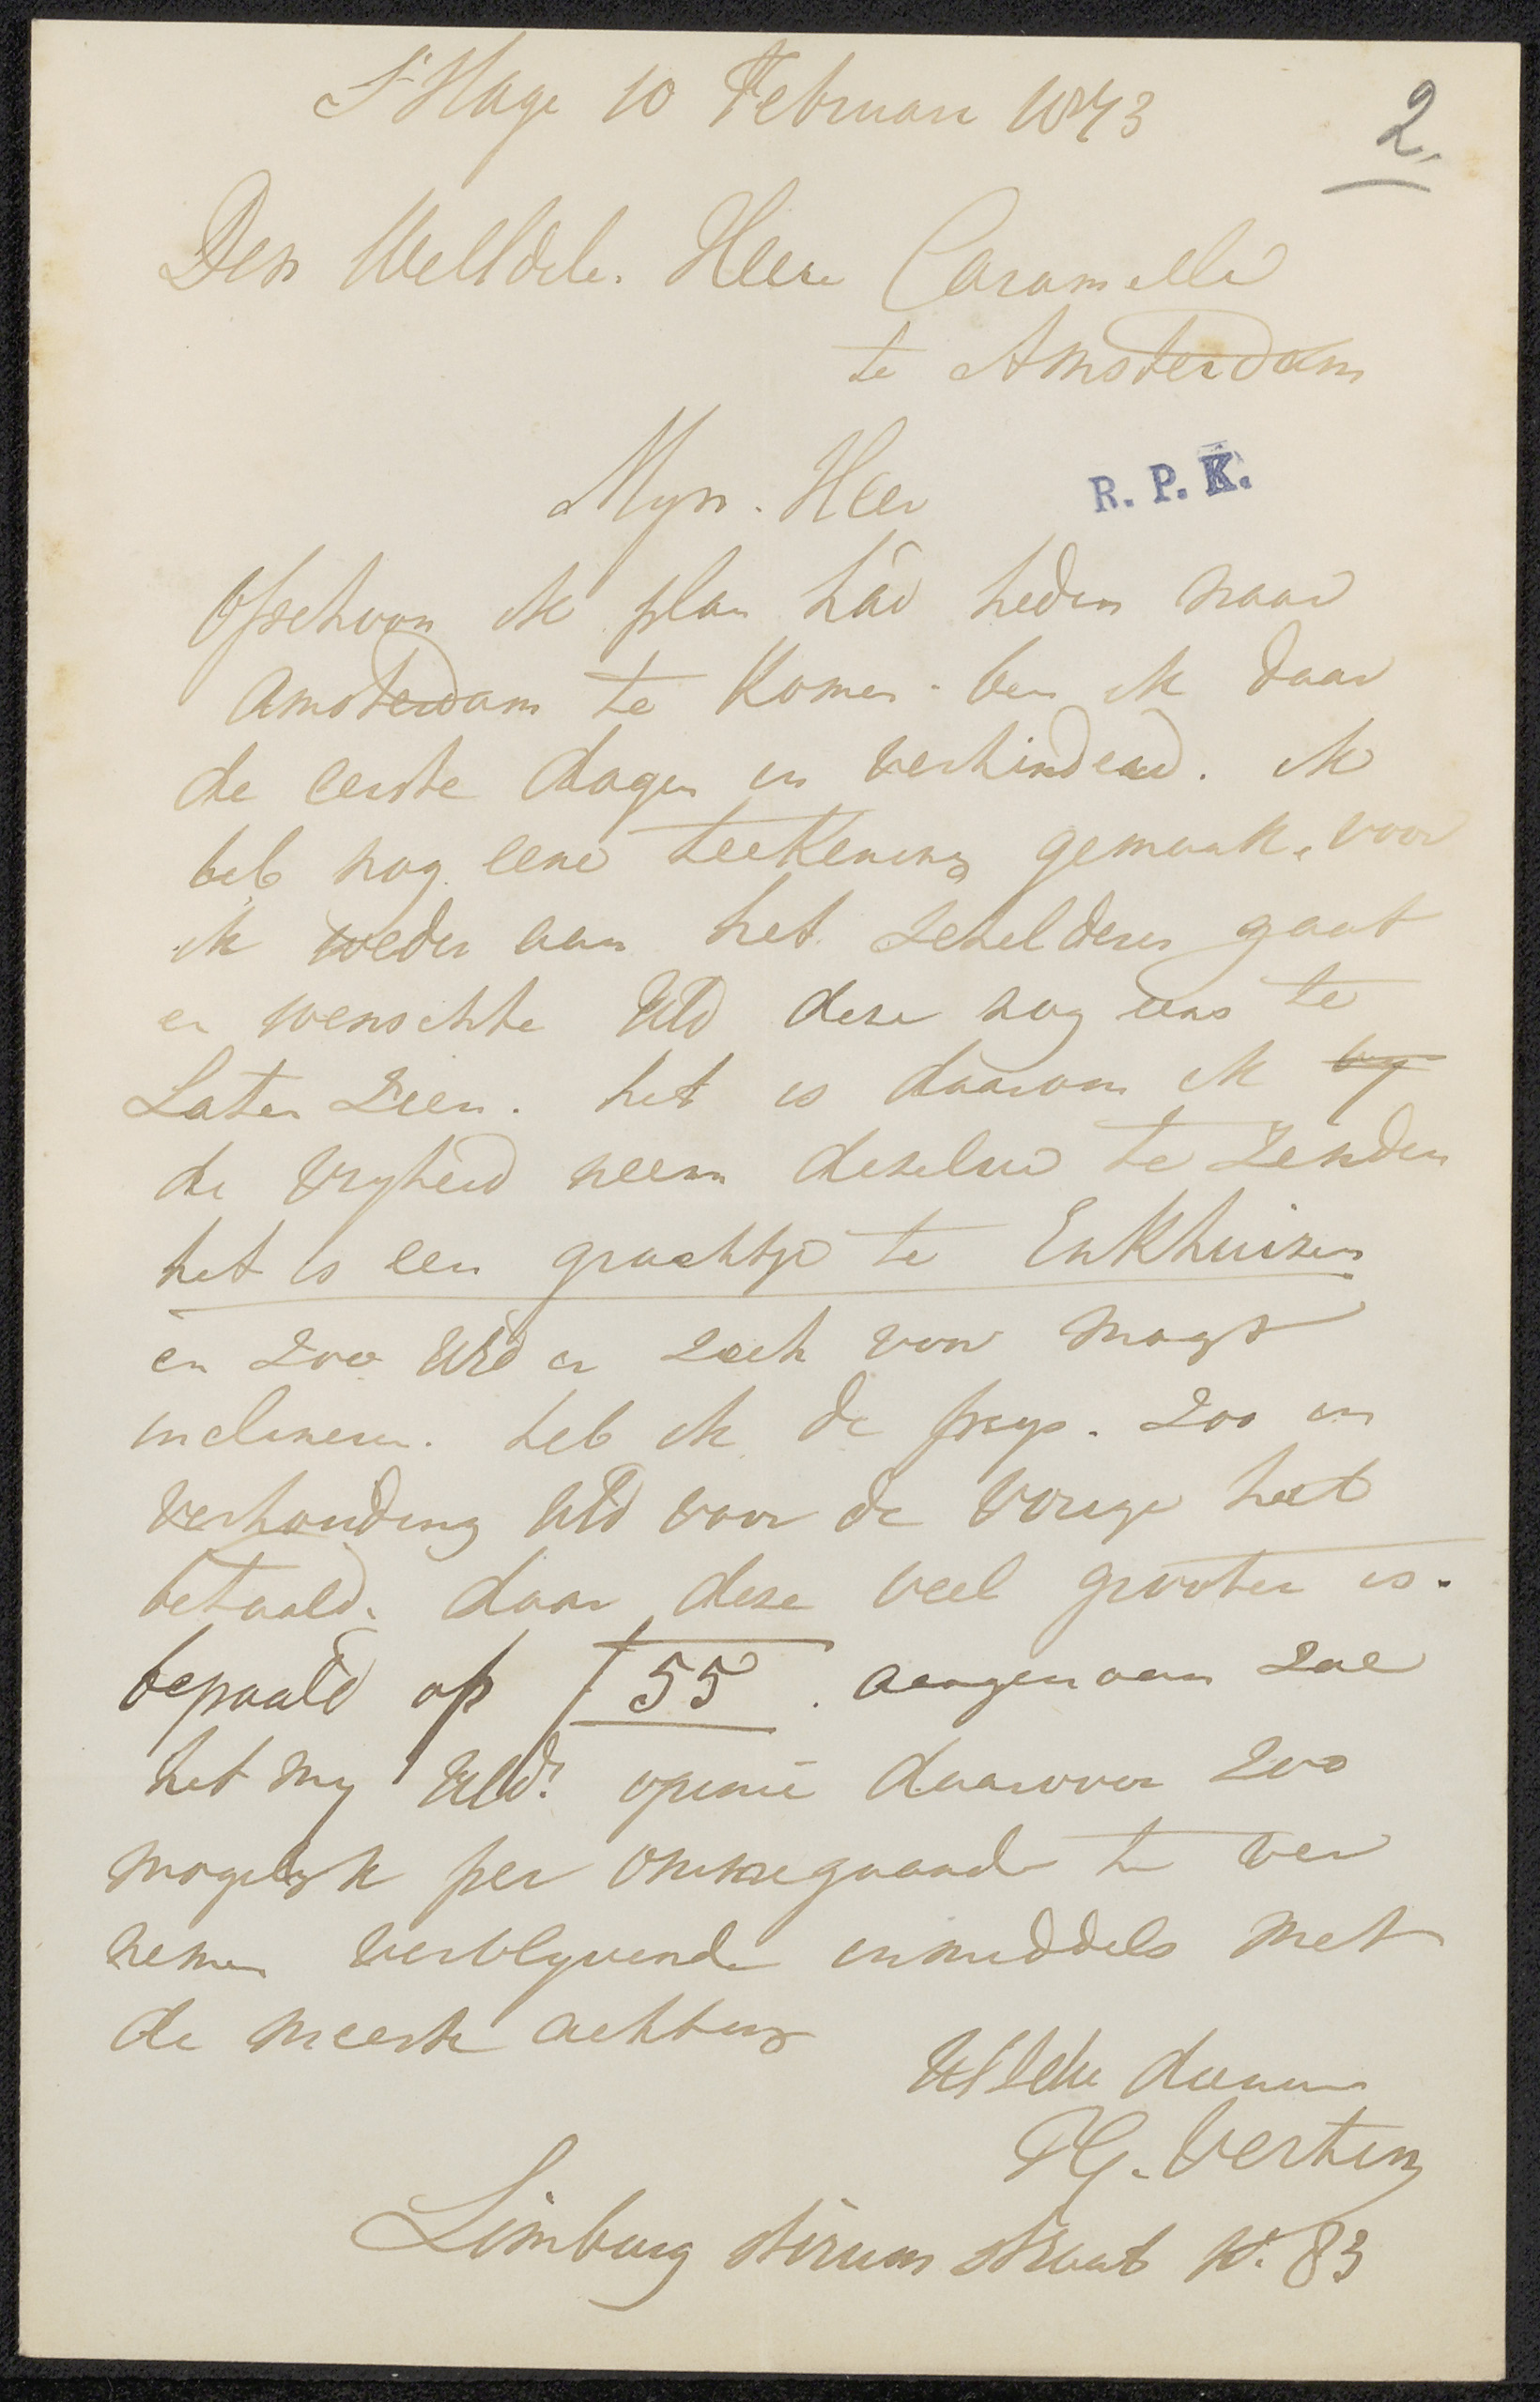 S'Hage 10 Februari 1873
2.
Den WelEdele. Heere Caramelli
te Amsterdam
Myn. Heer
R. P. K.
Ofschoon ik plan had heden naar
Amsterdam te Komen. ben ik daar
de eerste dagen in verhinderd. ik
heb nog eene teekening gemaakt. voor
ik weder aan het schilderen gaat
en wenschte UEd deze nog eens te
Laten zien. het is daarom ik
de vryheid neem dezelve te zenden
het is een grachtje te Enkhuizen
en zoo UEd er zich voor mogt
inclineren. heb ik de prys. zoo in
verhouding UEd voor de vorige heeft
betaald. daar deze veel grooter is.
bepaald op f 55. aangenaam zal
het my UEd. opinie daarover zoo
mogelyk per ommegaande te ver
nemen verblyvende inmiddels met
de meeste achting
UEdele dienaar
PG. Vertin
Limburg stirum straat No. 83